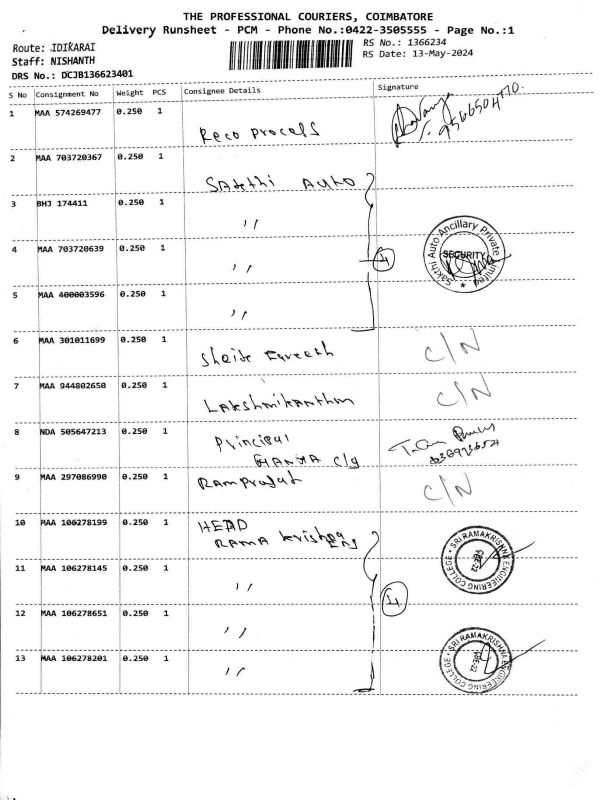 THE PROFESSIONAL COURIERS, COIMBATORE
Delivery Runsheet - PCM - Phone No.:0422-3505555 - Page No.:1
Route: IDIKARAI
Staff: NISHANTH
DRS No.: DCJB136623401
RS No.: 1366234
RS Date: 13-May-2024
S No Consignment No Weight PCS Consignee Details Signature
1 MAA 574269477 0.250 1 Reco process
2 MAA 703720367 0.250 1 Sakthi Auto
3 BHJ 174411 0.250 1 ,,
4 MAA 703720639 0.250 1 ,, 4
Sakthi Auto Ancillary Private Limited
SECURITY
5 MAA 400003596 0.250 1 ,,
6 MAA 301011699 0.250 1 C/N
7 MAA 944802650 0.250 1 Lakshmikanthm C/N
8 NDA 505647213 0.250 1 Principal
clg
9 MAA 297086990 0.250 1 C/N
10 MAA 106278199 0.250 1 HEAD
RAMA krishna
SRI RAMAKRISHNA ENGINEERING COLLEGE
11 MAA 106278145 0.250 1 ,, 4
12 MAA 106278651 0.250 1 ,,
13 MAA 106278201 0.250 1 ,,
SRI RAMAKRISHNA ENGINEERING COLLEGE